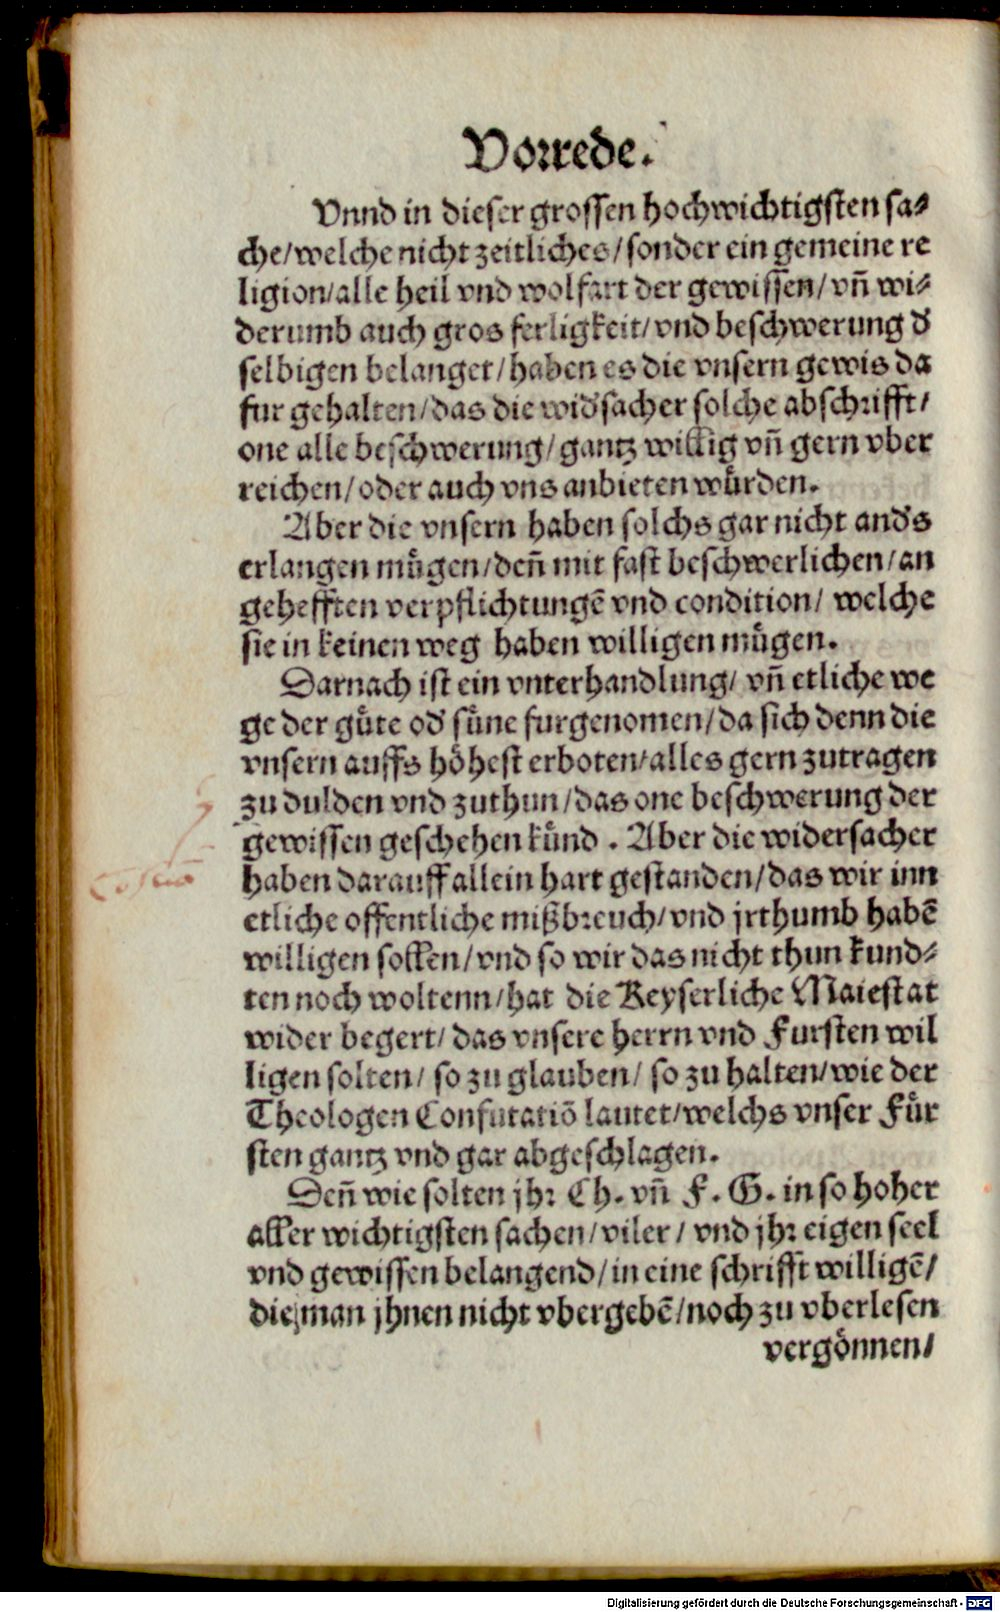 Vorrede.
Vnnd in dieser grossen hochwichtigsten sa⸗
che/welche nicht zeitliches/sonder ein gemeine re
ligion/alle heil vnd wolfart der gewissen/vñ wi⸗
derumb auch gros ferligkeit/vnd beschwerung d'
selbigen belanget/haben es die vnsern gewis da
fur gehalten/das die wid'sacher solche abschrifft/
one alle beschwerung/gantz willig vñ gern vber
reichen/oder auch vns anbieten wuͤrden.
Aber die vnsern haben solchs gar nicht and's
erlangen muͤgen/deñ mit fast beschwerlichen/an
gehefften verpflichtungē vnd condition/ welche
sie in keinen weg haben willigen muͤgen.
Darnach ist ein vnterhandlung/ vñ etliche we
ge der guͤte od' suͤne furgenomen/da sich denn die
vnsern auffs hoͤhest erboten/alles gern zutragen
zu dulden vnd zuthun/das one beschwerung der
gewissen geschehen kuͤnd . Aber die widersacher
haben darauff allein hart gestanden/das wir inn
etliche offentliche mißbreuch/vnd jrthumb habē
willigen sollen/vnd so wir das nicht thun kund⸗
ten noch woltenn/hat die Keyserliche Maiestat
wider begert/ das vnsere herrn vnd Fursten wil
ligen solten/ so zu glauben/ so zu halten/wie der
Theologen Confutatiō lautet/welchs vnser Fuͤr
sten gantz vnd gar abgeschlagen.
Deñ wie solten jhr Ch. vñ F. G. in so hoher
aller wichtigsten sachen/viler/ vnd jhr eigen seel
vnd gewissen belangend/in eine schrifft willigē/
die man jhnen nicht vbergebē/noch zu vberlesen
vergoͤnnen/
Digitalisierung gefördert durch die Deutsche Forschungsgemeinschaft - DFG